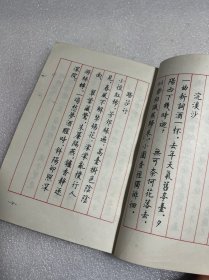 浣溪沙
一曲新詞酒一杯，去年天氣舊亭臺。夕
陽西下幾時迴？無可奈何花落去，
似曾相識燕歸來。小園香徑獨徘徊。
踏莎行
小徑紅稀，芳郊綠遍，高臺樹色陰陰
見。春風不解禁楊花，濛濛亂撲行人
面。翠葉藏鶯，朱簾隔燕，爐香静逐
游絲轉。一場愁夢酒醒時，斜陽却照深
深院。